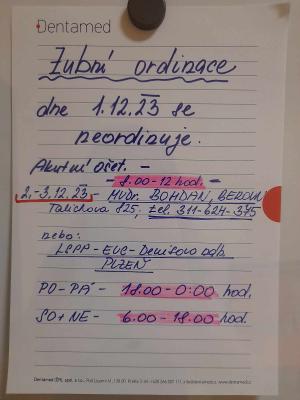 Dentamed
Zubní ordinace
dne 1.12.23 se
neordinuje.
Akutní ošet. -
- 8.00-12 hod. -
2.-3.12.23 MUDr. BOHDAN, BEROUN
Talichova 825, tel. 311-624-375
nebo:
LSPP - EUC - Denisovo nábř.
PLZEŇ
PO-PÁ - 18.00-0:00 hod.
SO+NE - 6.00-18.00 hod.
Dentamed (ČR), spol. s r.o.,
www.dentamed.cz